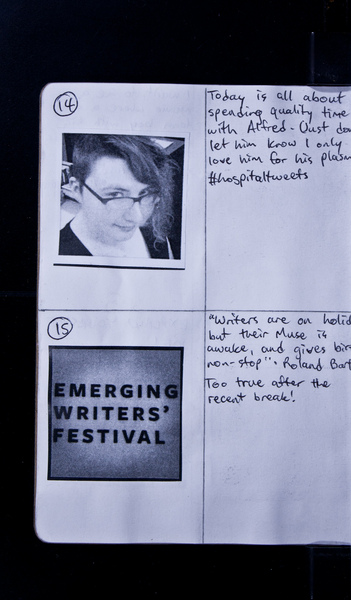 14
Today is all about
spending quality time
with Alfred - Just don
let him know I only
love him for his plasm
#hospitaltweets
15
EMERGING
WRITERS'
FESTIVAL
"Writers are on holid
but their Muse is
awake, and gives bir
non-stop" - Roland Bart
Too true after the
recent break!